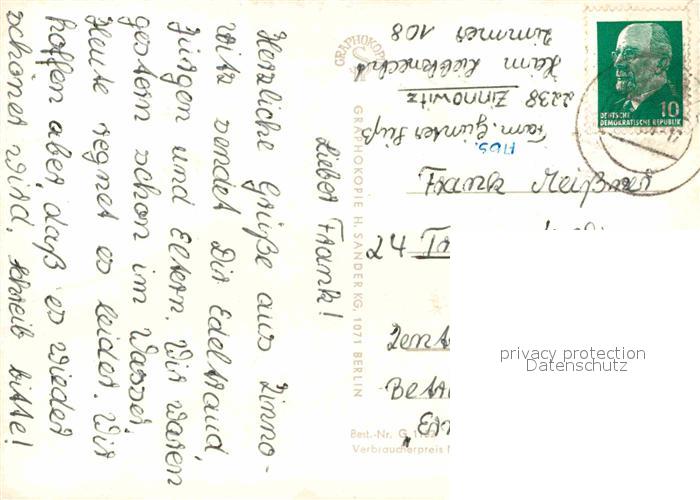 Lieber Frank!
Herzliche Grüße aus Zinno-
witz sendet Dir Edeltraud,
Jürgen und Eltern. Wir waren
gestern schon im Wasser.
Heute regnet es leider. Wir
hoffen aber, daß es wieder
schöner wird. Schreib bitte!
GRAPHOKOPIE
GRAPHOKOPIE H. SANDER KG, 1071 BERLIN
Abs.
Fam. Günter Süß
2238 Zinnowitz
Ham Liebknecht
Zimmer 108
10
DEUTSCHE
DEMOKRATISCHE REPUBLIK
Frank Meißner
24
Zent
Best.-Nr. G
Verbraucherpreis
privacy protection
Datenschutz